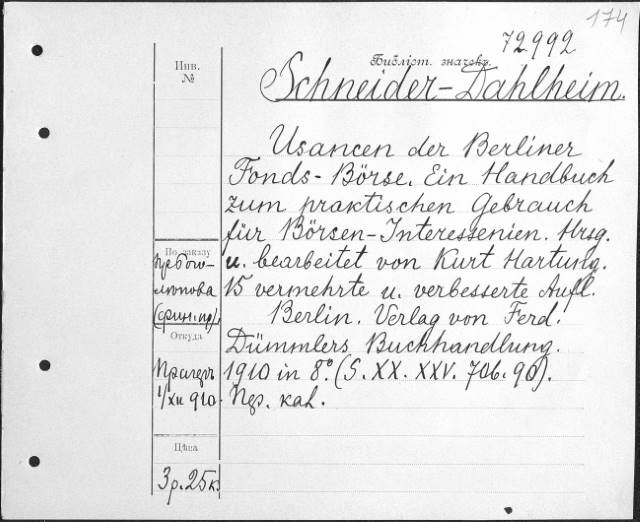 174
72992
Инв.
№
Библіот. значекъ.
Schneider-Dahlheim.
Usancen der Berliner
Fonds-Börse. Ein Handbuch
zum praktischen Gebrauch
für Börsen-Interessenien. Hrsg.
u. bearbeitet von Kurt Hartung.
15 vermehrte u. verbesserte Aufl.
Berlin. Verlag von Ferd.
Dümmlers Buchhandlung.
1910 in 8° (S. XX. XXV. 706. 90).
По заказу
Откуда
1/XII 910.
Цѣна
3р. 25к